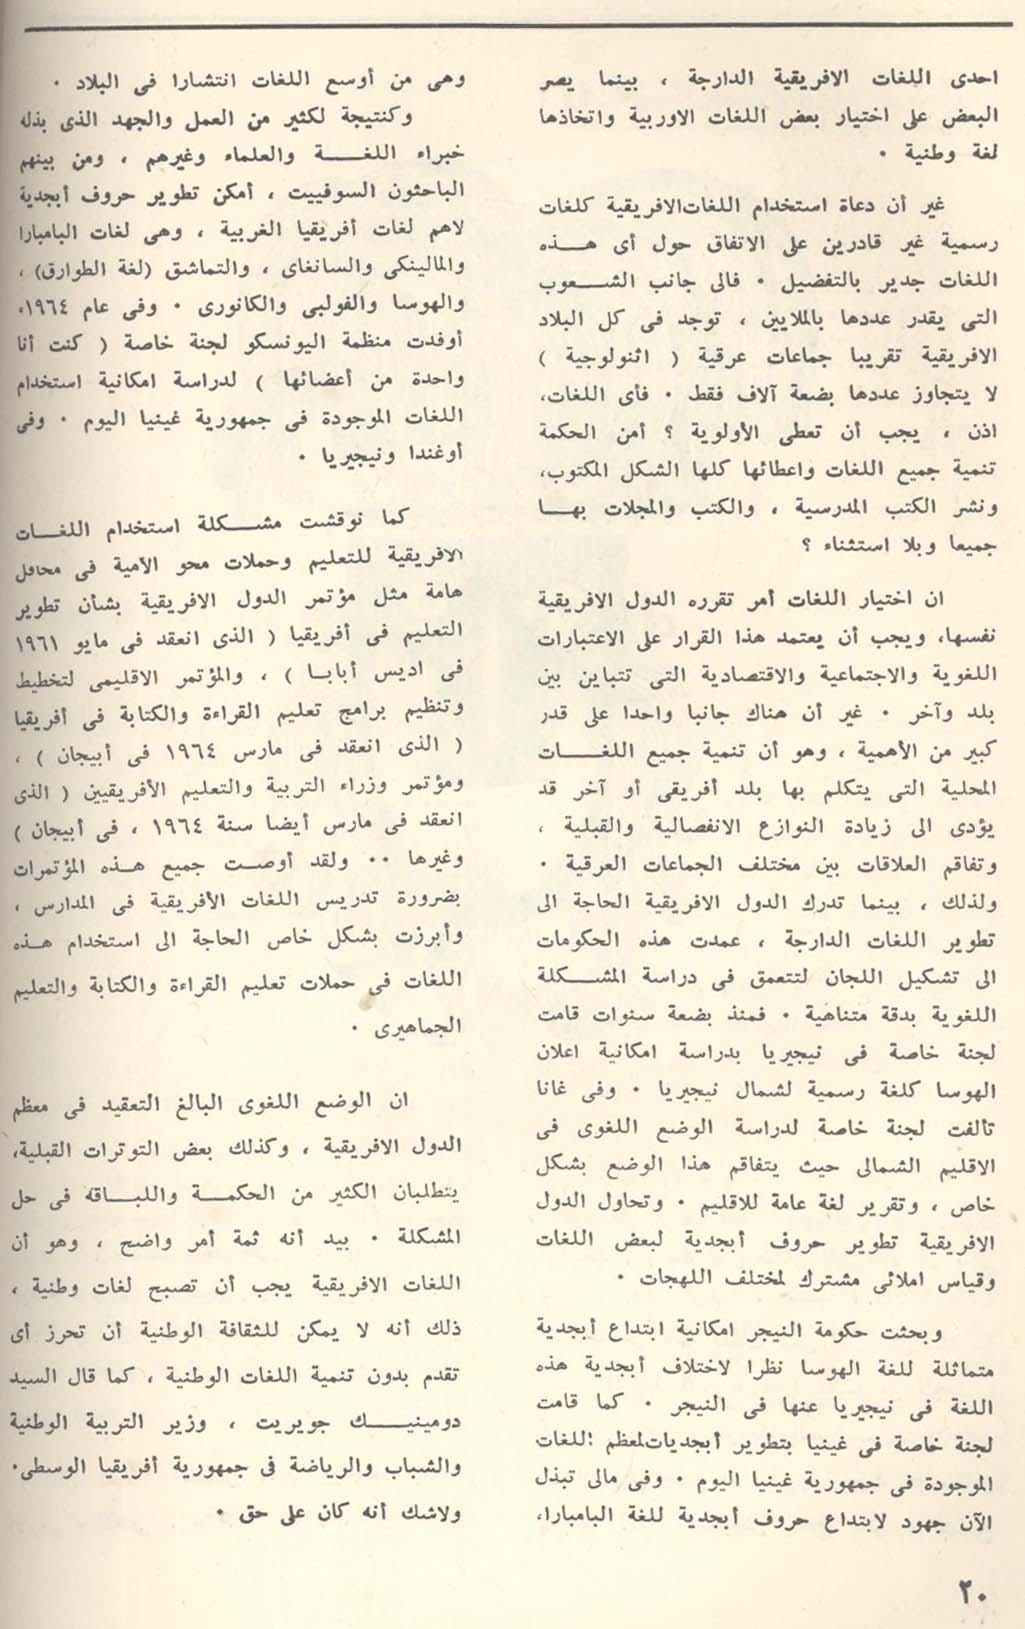 احدى اللغات الافريقية الدارجة ، بينما يصر
البعض على اختيار بعض اللغات الاوربية واتخاذها
لغة وطنية ٠
غير أن دعاة استخدام اللغات الافريقية كلغات
رسمية غير قادرين على الاتفاق حول أى هــذه
اللغات جدير بالتفضيل ٠ فالى جانب الشــعوب
التى يقدر عددها بالملايين ، توجد فى كل البلاد
الافريقية تقريبا جماعات عرقية ( اثنولوجية )
لا يتجاوز عددها بضعة آلاف فقط ٠ فأى اللغات،
اذن ، يجب أن تعطى الأولوية ؟ أمن الحكمة
تنمية جميع اللغات واعطائها كلها الشكل المكتوب،
ونشر الكتب المدرسية ، والكتب والمجلات بهــا
جميعا وبلا استثناء ؟
ان اختيار اللغات أمر تقرره الدول الافريقية
نفسها، ويجب أن يعتمد هذا القرار على الاعتبارات
اللغوية والاجتماعية والاقتصادية التى تتباين بين
بلد وآخر ٠ غير أن هناك جانبا واحدا على قدر
كبير من الأهمية ، وهو أن تنمية جميع اللغــات
المحلية التى يتكلم بها بلد أفريقى أو آخر قد
يؤدى الى زيادة النوازع الانفصالية والقبلية ،
وتفاقم العلاقات بين مختلف الجماعات العرقية ٠
ولذلك ، بينما تدرك الدول الافريقية الحاجة الى
تطوير اللغات الدارجة ، عمدت هذه الحكومات
الى تشكيل اللجان لتتعمق فى دراسة المشــكلة
اللغوية بدقة متناهية ٠ فمنذ بضعة سنوات قامت
لجنة خاصة فى نيجيريا بدراسة امكانية اعلان
الهوسا كلغة رسمية لشمال نيجيريا ٠ وفى غانا
تألفت لجنة خاصة لدراسة الوضع اللغوى فى
الاقليم الشمالى حيث يتفاقم هذا الوضع بشكل
خاص ، وتقرير لغة عامة للاقليم ٠ وتحاول الدول
الافريقية تطوير حروف أبجدية لبعض اللغات
وقياس املائى مشترك لمختلف اللهجات ٠
وبحثت حكومة النيجر امكانية ابتداع أبجدية
متماثلة للغة الهوسا نظرا لاختلاف أبجدية هذه
اللغة فى نيجيريا عنها فى النيجر ٠ كما قامت
لجنة خاصة فى غينيا بتطوير أبجديات لمعظم اللغات
الموجودة فى جمهورية غينيا اليوم ٠ وفى مالى تبذل
الآن جهود لابتداع حروف أبجدية للغة البامبارا،
وهى من أوسع اللغات انتشارا فى البلاد ٠
وكنتيجة لكثير من العمل والجهد الذى بذله
خبراء اللغــة والعلماء وغيرهم ، ومن بينهم
الباحثون السوفييت ، أمكن تطوير حروف أبجدية
لاهم لغات أفريقيا الغربية ، وهى لغات البامبارا
والمالينكى والسانغاى ، والتماشق (لغة الطوارق) ،
والهوسا والفولبى والكانورى ٠ وفى عام ١٩٦٤،
أوفدت منظمة اليونسكو لجنة خاصة ( كنت أنا
واحدة من أعضائها ) لدراسة امكانية استخدام
اللغات الموجودة فى جمهورية غينيا اليوم ٠ وفى
أوغندا ونيجيريا ٠
كما نوقشت مشــكلة استخدام اللغــات
الافريقية للتعليم وحملات محو الأمية فى محافل
هامة مثل مؤتمر الدول الافريقية بشأن تطوير
التعليم فى أفريقيا ( الذى انعقد فى مايو ١٩٦١
فى اديس أبابــا ) ، والمؤتمر الاقليمى لتخطيط
وتنظيم برامج تعليم القراءة والكتابة فى أفريقيا
( الذى انعقد فى مارس ١٩٦٤ فى أبيجان ) ،
ومؤتمر وزراء التربية والتعليم الأفريقيين ( الذى
انعقد فى مارس أيضا سنة ١٩٦٤ ، فى أبيجان )
وغيرها ٠٠ ولقد أوصــت جميع هــذه المؤتمرات
بضرورة تدريس اللغات الأفريقية فى المدارس ،
وأبرزت بشكل خاص الحاجة الى استخدام هــذه
اللغات فى حملات تعليم القراءة والكتابة والتعليم
الجماهيرى ٠
ان الوضع اللغوى البالغ التعقيد فى معظم
الدول الافريقية ، وكذلك بعض التوترات القبلية،
يتطلبان الكثير من الحكمــة واللبــاقة فى حل
المشكلة ٠ بيد أنه ثمة أمر واضح ، وهو أن
اللغات الافريقية يجب أن تصبح لغات وطنية ،
ذلك أنه لا يمكن للثقافة الوطنية أن تحرز أى
تقدم بدون تنمية اللغات الوطنية ، كما قال السيد
دومينيــك جويريت ، وزير التربية الوطنية
والشباب والرياضة فى جمهورية أفريقيا الوسطى٠
ولاشك أنه كان على حق ٠
٢٠